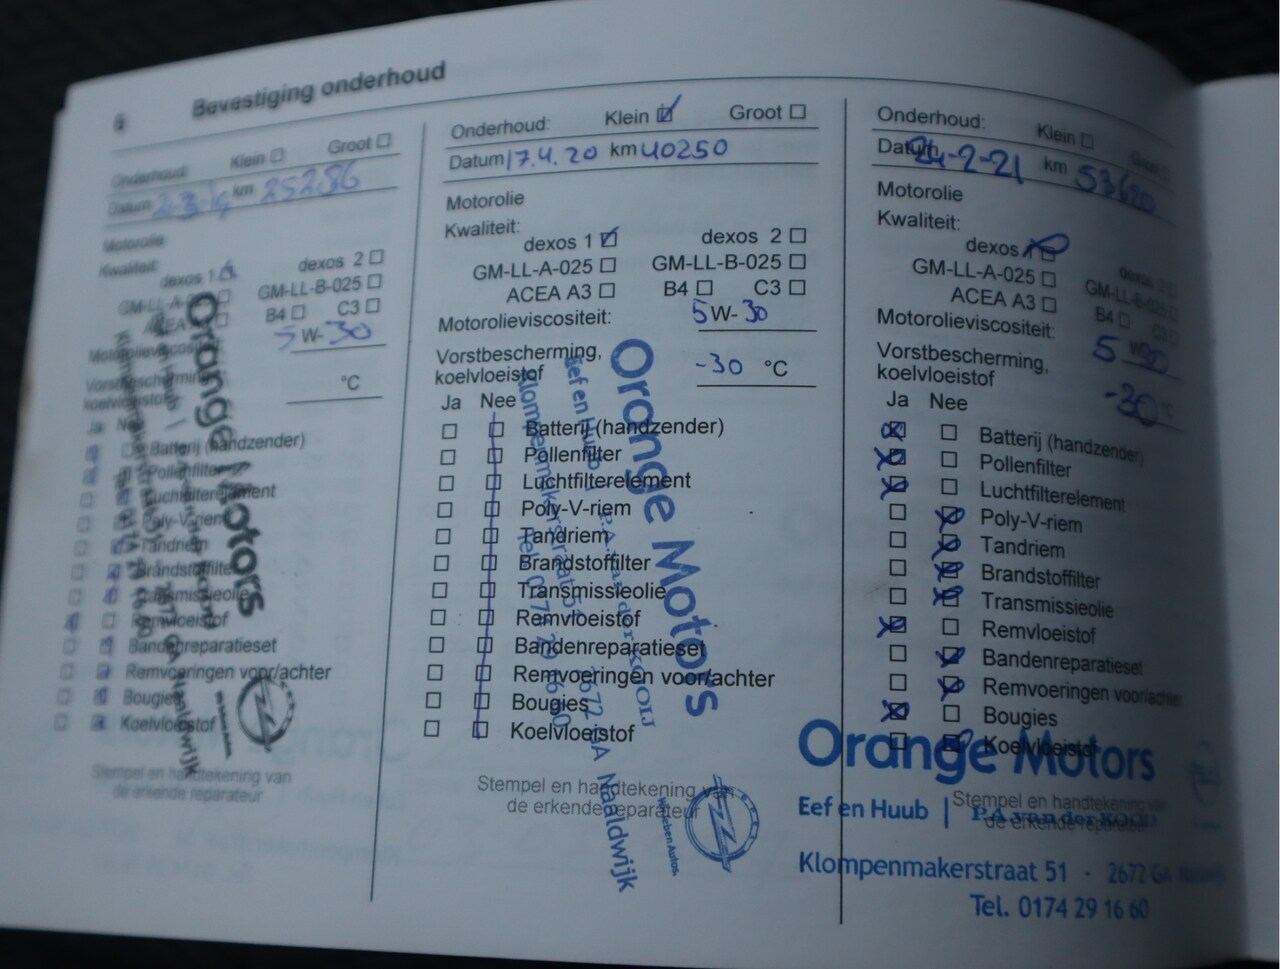 6 Bevestiging onderhoud
Onderhoud: Klein Groot
Datum 2-3-19 km 25286
Motorolie
Kwaliteit:
dexos 1 dexos 2
GM-LL-A-025 GM-LL-B-025
ACEA A3 B4 C3
Motorolieviscositeit: 5 W-30
Vorstbescherming,
koelvloeistof °C
Ja Nee
Batterij (handzender)
Pollenfilter
Luchtfilterelement
Poly-V-riem
Tandriem
Brandstoffilter
Transmissieolie
Remvloeistof
Bandenreparatieset
Remvoeringen voor/achter
Bougies
Koelvloeistof
Stempel en handtekening van
de erkende reparateur
Orange Motors
Naaldwijk
Onderhoud: Klein Groot
Datum 17.4.20 km 40250
Motorolie
Kwaliteit:
dexos 1 dexos 2
GM-LL-A-025 GM-LL-B-025
ACEA A3 B4 C3
Motorolieviscositeit: 5 W-30
Vorstbescherming,
koelvloeistof -30 °C
Ja Nee
Batterij (handzender)
Pollenfilter
Luchtfilterelement
Poly-V-riem
Tandriem
Brandstoffilter
Transmissieolie
Remvloeistof
Bandenreparatieset
Remvoeringen voor/achter
Bougies
Koelvloeistof
Stempel en handtekening van
de erkende reparateur
Orange Motors
Eef en Huub
Klompenmakerstraat 51 2672 GA Naaldwijk
Tel. 0174 29 16 60
Wij leven Autos.
Onderhoud: Klein Groot
Datum 24-2-21 km 53620
Motorolie
Kwaliteit:
dexos 1 dexos 2
GM-LL-A-025 GM-LL-B-025
ACEA A3 B4 C3
Motorolieviscositeit: 5 W-30
Vorstbescherming,
koelvloeistof -30 °C
Ja Nee
Batterij (handzender)
Pollenfilter
Luchtfilterelement
Poly-V-riem
Tandriem
Brandstoffilter
Transmissieolie
Remvloeistof
Bandenreparatieset
Remvoeringen voor/achter
Bougies
Koelvloeistof
Orange Motors
Stempel en handtekening van
de erkende reparateur
Eef en Huub | P.A van der KOOIJ
Klompenmakerstraat 51 - 2672 GA Naaldwijk
Tel. 0174 29 16 60